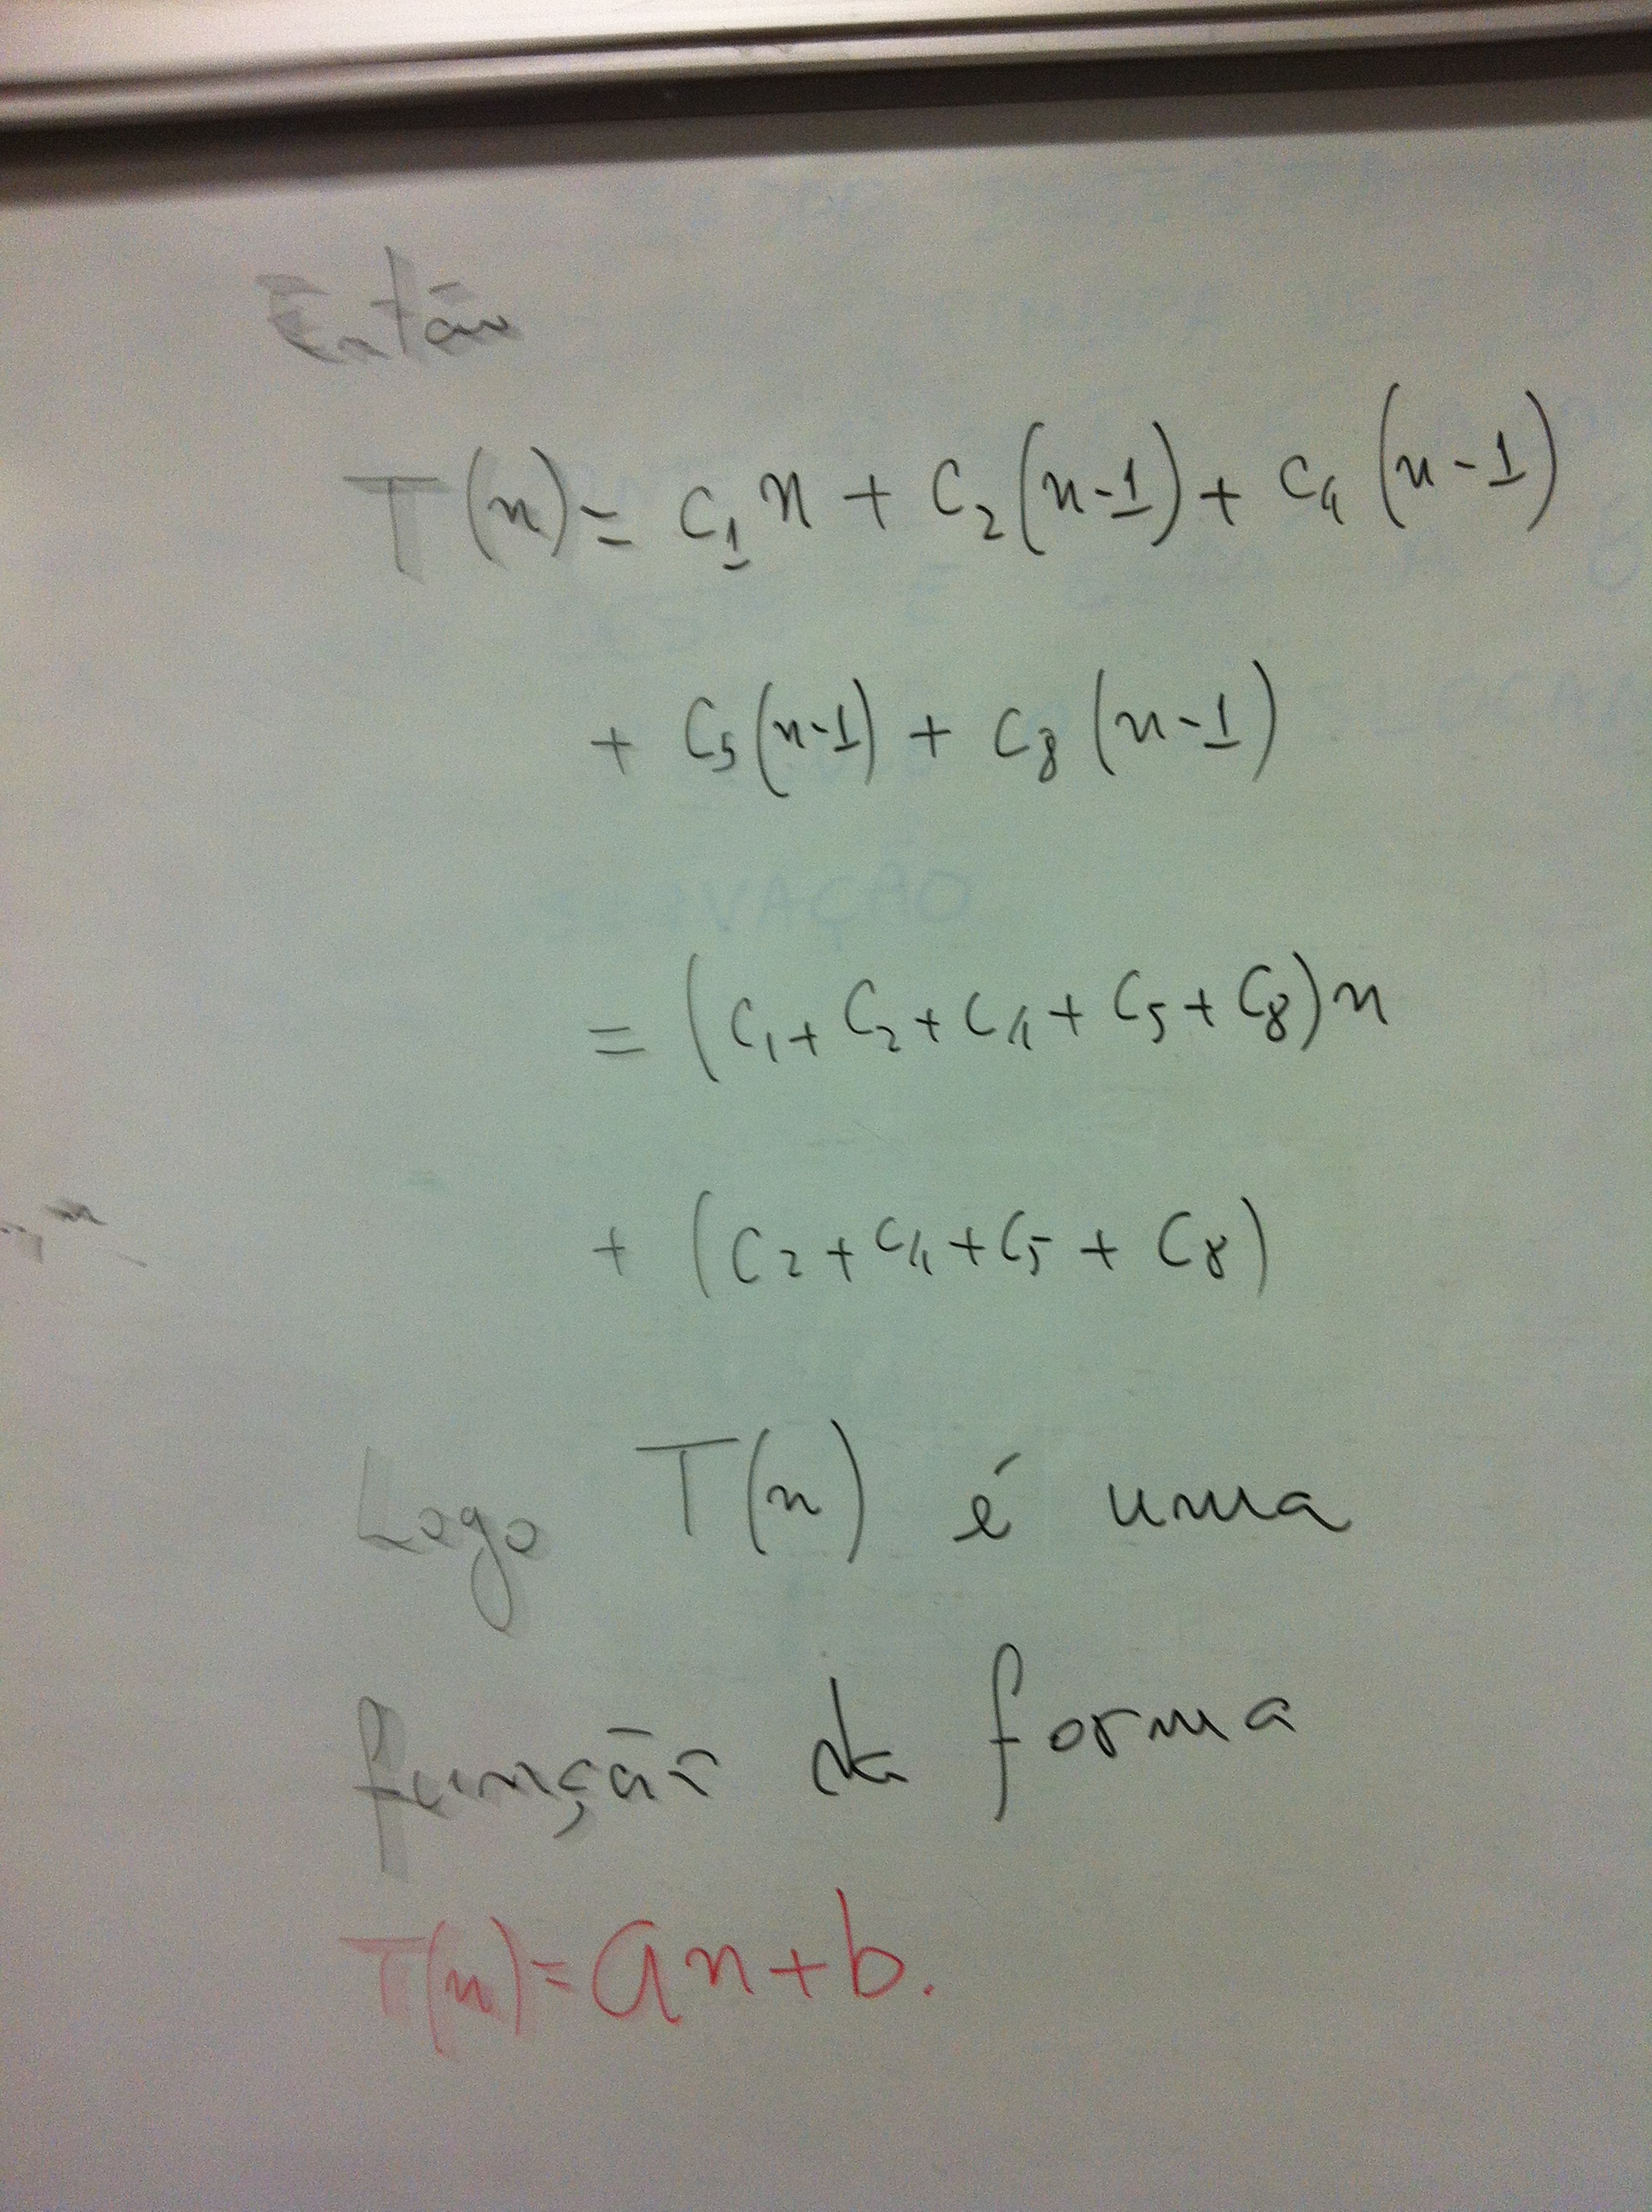 Então
T(n) = c₁n + c₂(n-1) + c₄(n-1)
+ c₅(n-1) + c₈(n-1)
VAÇÃO
= (c₁ + c₂ + c₄ + c₅ + c₈)n
+ (c₂ + c₄ + c₅ + c₈)
Logo T(n) é uma
função da forma
T(n) = an + b.